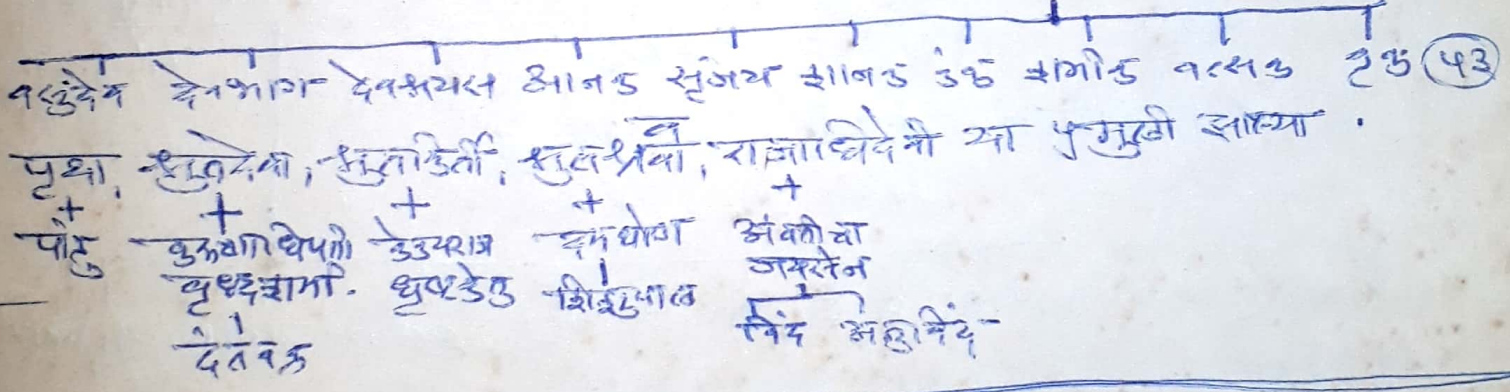 वसुदेव देवभाग देवश्रवस आनक सृंजय श्यामक कंक शमीक वत्सक वृक ५३
पृथा, श्रुतदेवा, श्रुतकिर्ती, श्रुतश्रवा, व राजाधिदेवी या
+ + + + +
पांडु करुषाधिपती केकयराज दमघोष अवंतीचा
वृध्दशर्मा. धृष्टकेतु शिशुपाल जयसेन
दंतवक्र विंद अनुविंद